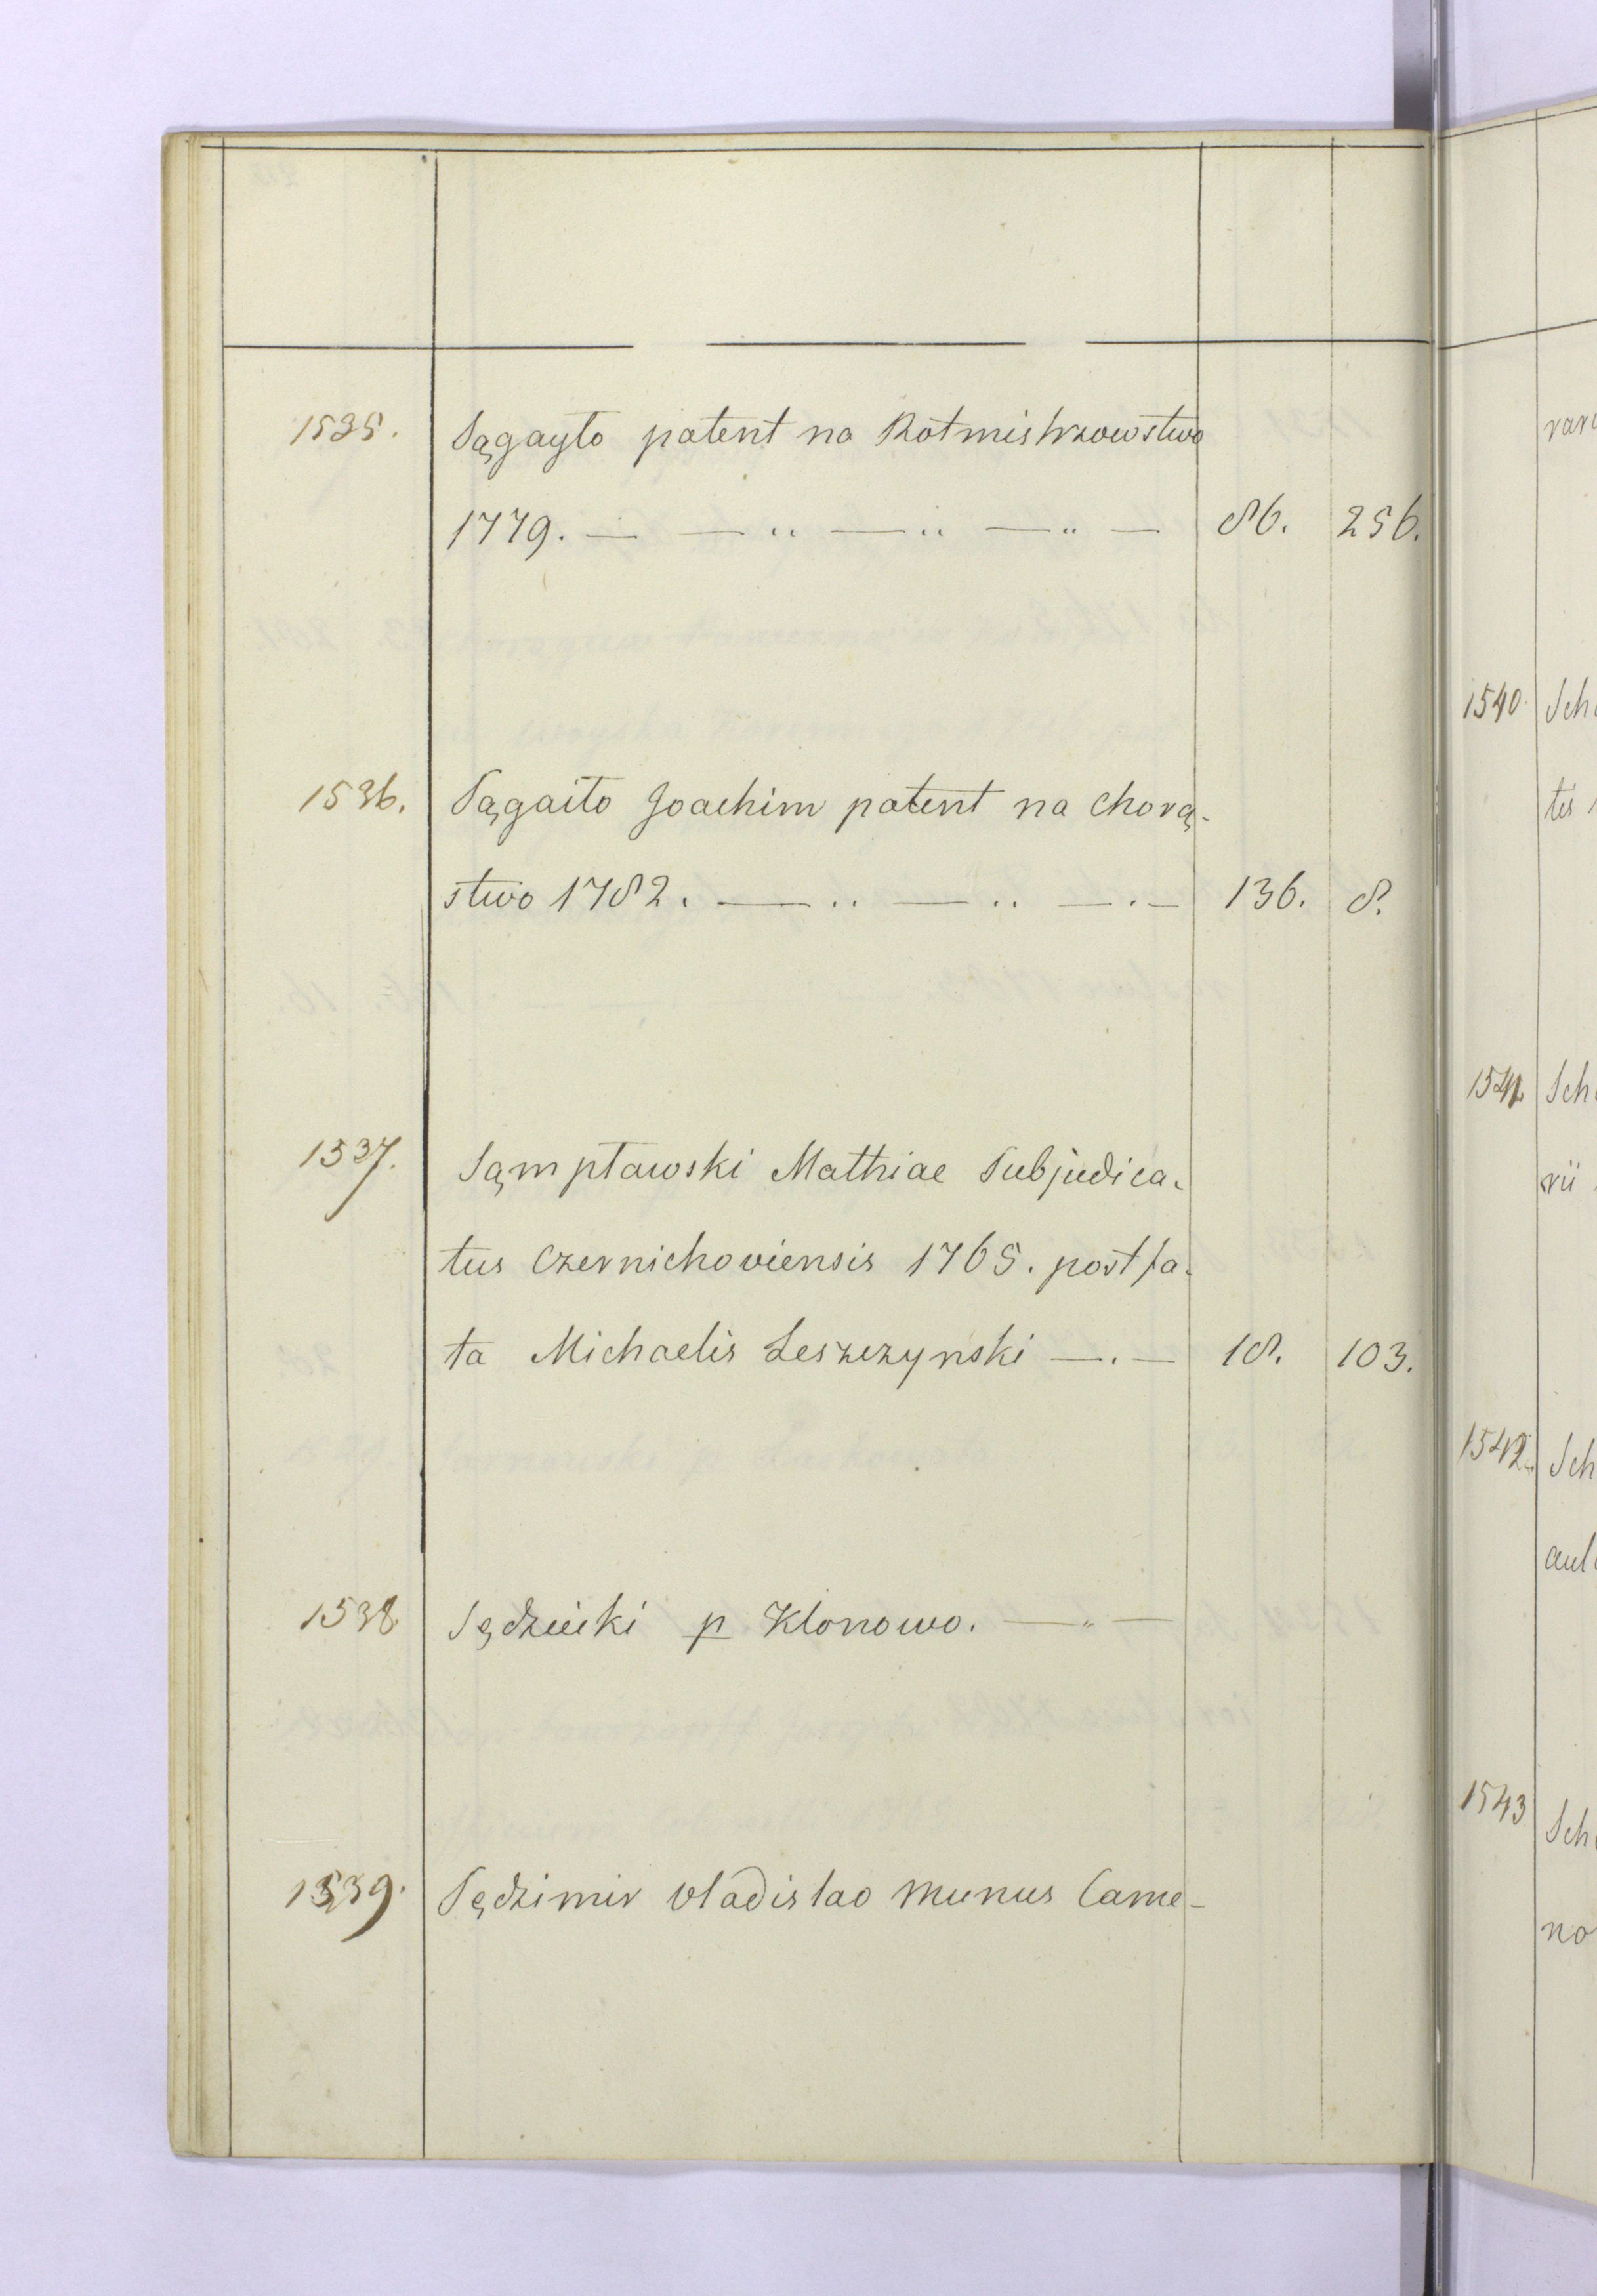 1535. Sągayło patent na Rotmistrzowstwo
1779. — — „ — „ — „ — 86. 256.
1536. Sągaiło Joachim patent na chorą-
stwo 1782. — „ — „ — . — 136. 8.
1537. Sąmpławski Mathiae Subjudica-
tus Czernichoviensis 1765. post fa-
ta Michaelis Leszczynski — . — 18. 103.
1538. Sędzicki p Klonowo. — „ —
1539. Sędzimir Vladislao munus Came-
1540. Sch
tes
1541. Sch
rii
1542. Sch
aul
1543 Sch
no